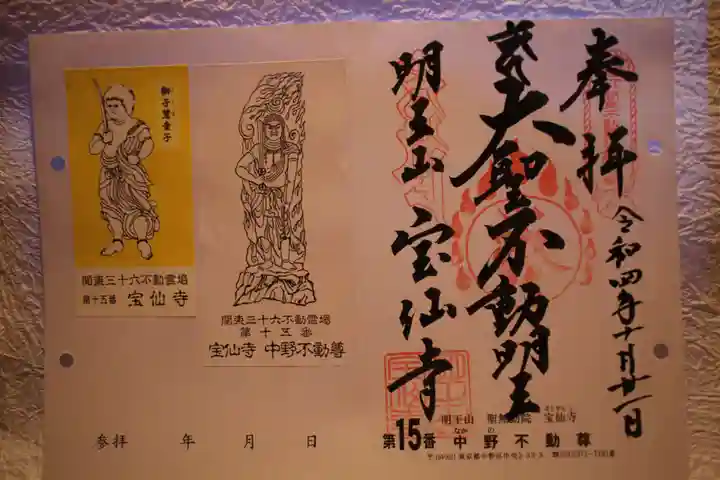 奉拝
令和四年十月廿一日
大聖不動明王
明王山
宝仙寺
明王山 聖無動院 宝仙寺
第15番 中野不動尊
なかの
関東三十六不動霊場
第十五番
宝仙寺 中野不動尊
獅子慧童子
関東三十六不動霊場
第十五番 宝仙寺
参拝 年 月 日